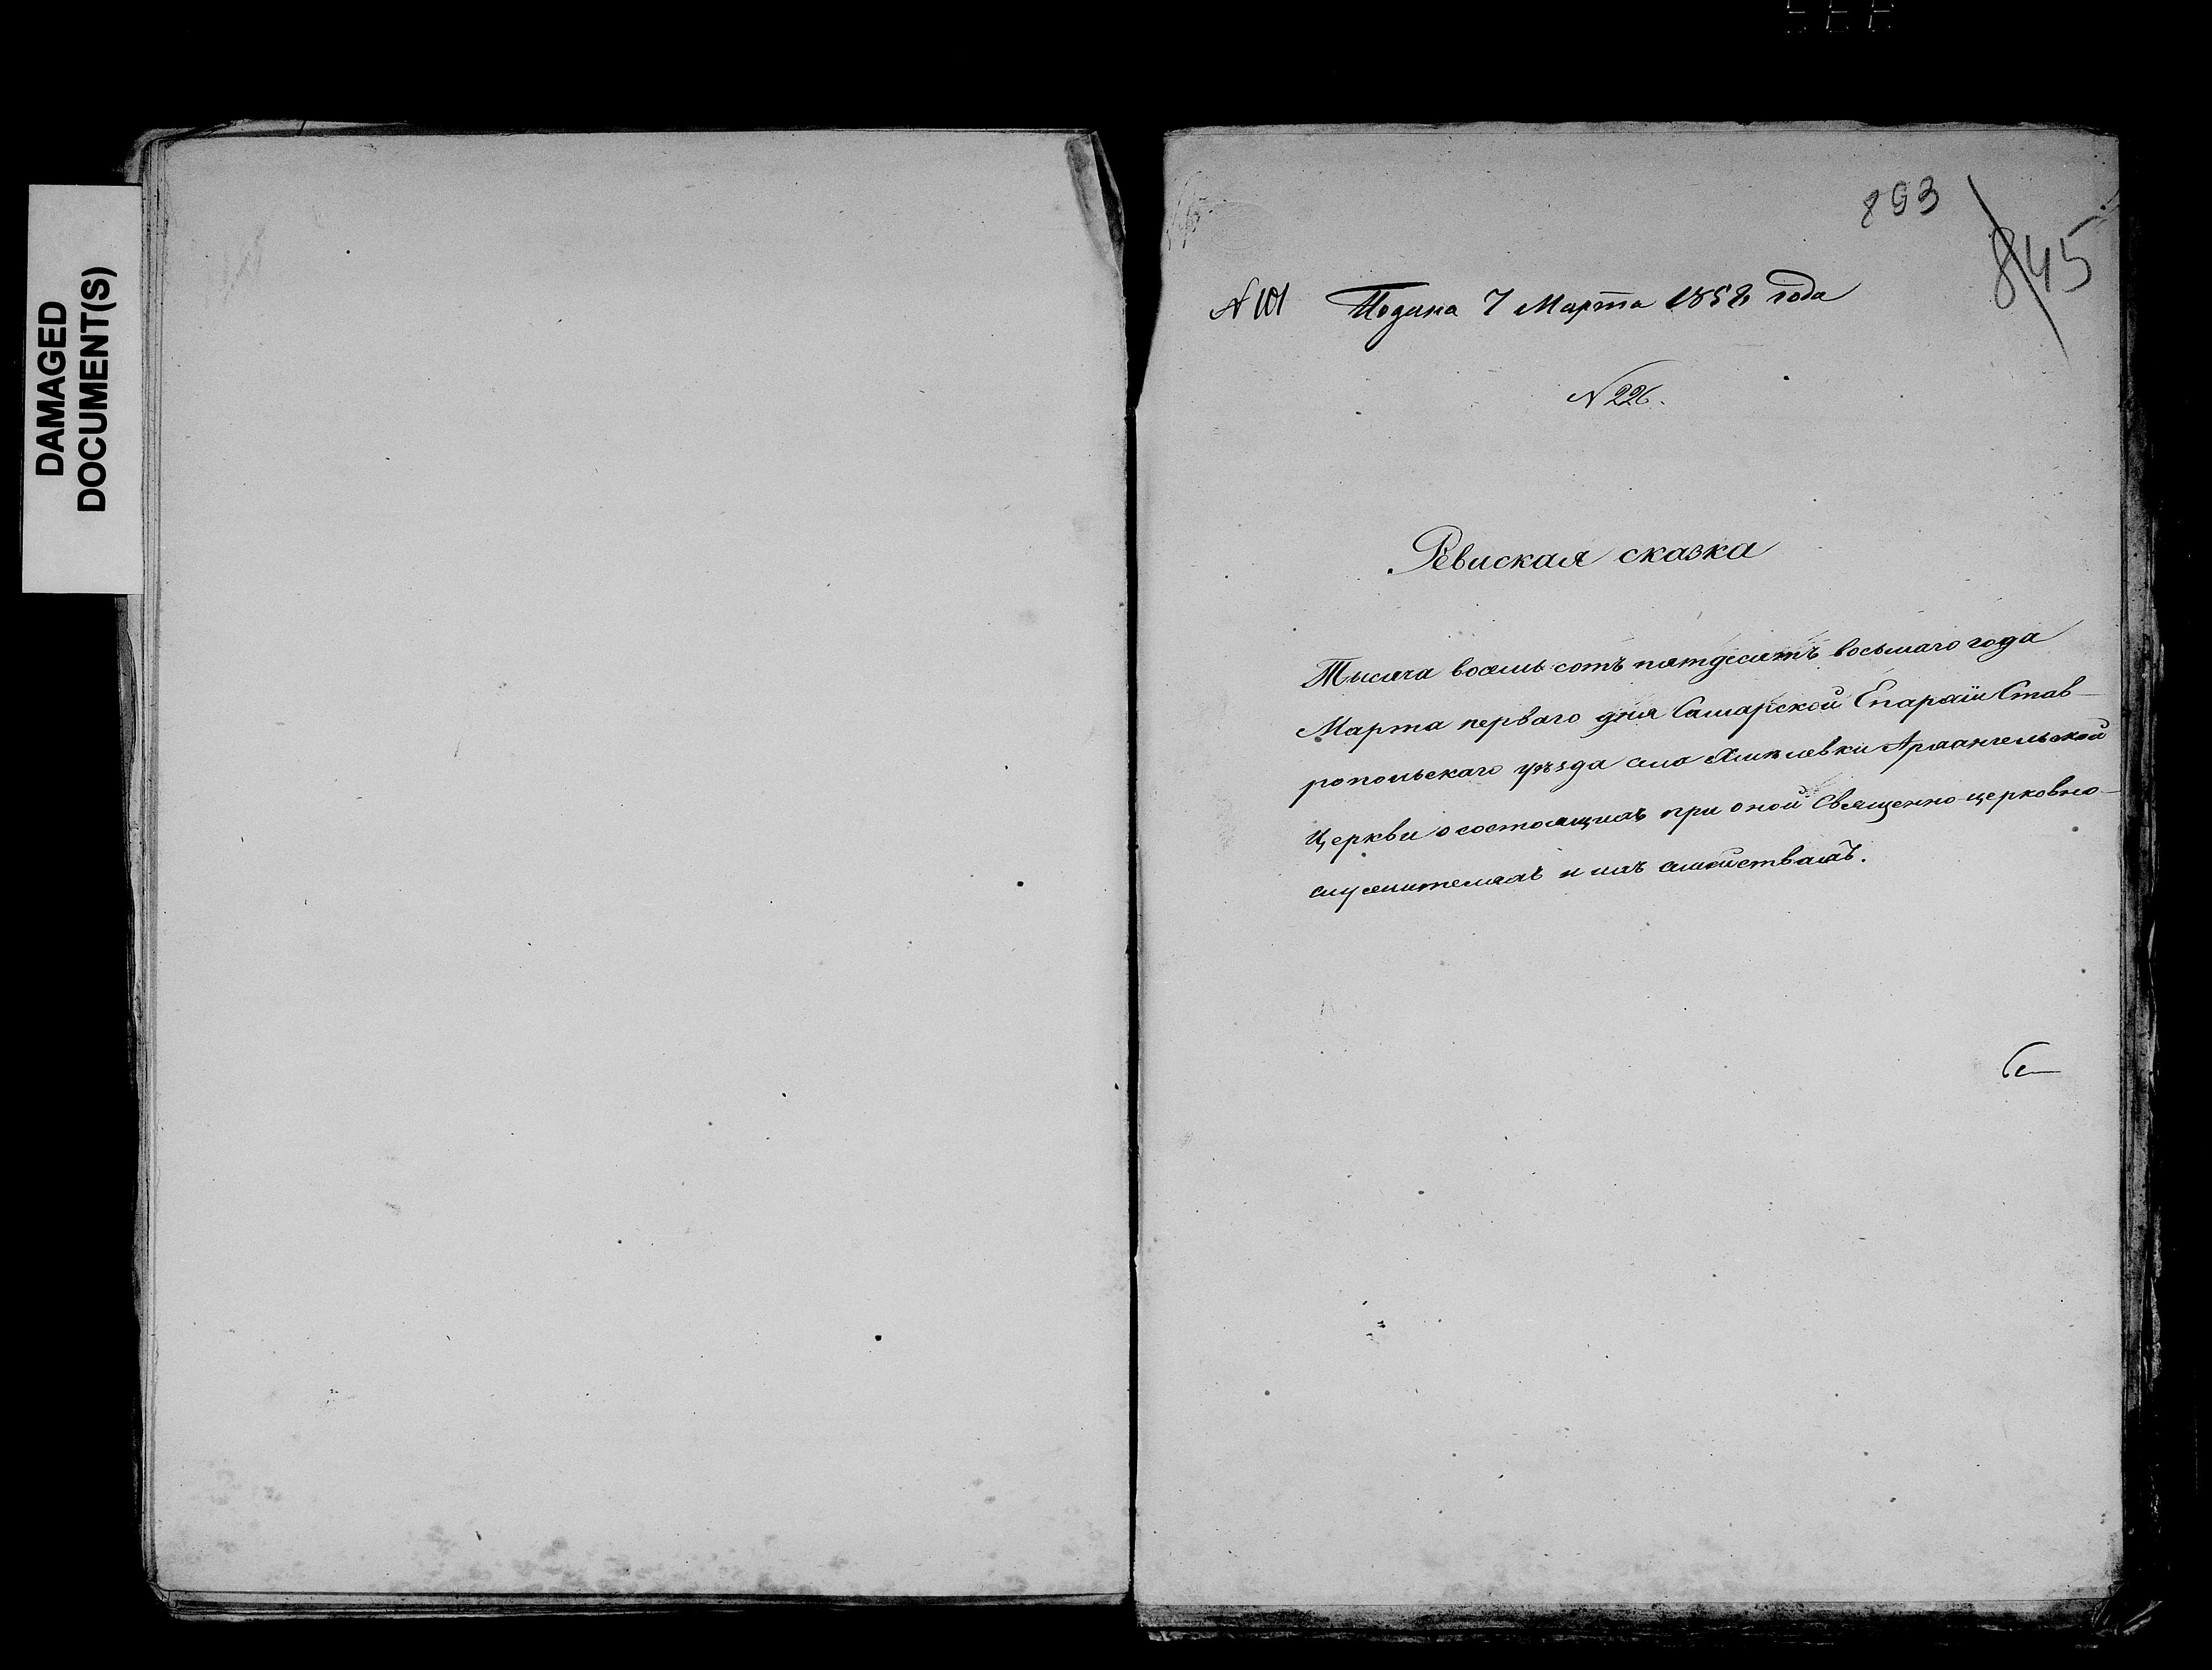 DAMAGED
DOCUMENT(S)
893
845
N 101 Подана 7 Марта 1858 года
N 226.
Ревиская сказка
Тысяча восемь сотъ пятдесятъ восьмаго года
Марта перваго дня Самарской Епархіи Став-
ропольскаго уѣзда села Хмѣлевки Архангельской
Церкви о состоящихъ при оной Священно-церковно-
служителяхъ и ихъ семействахъ.